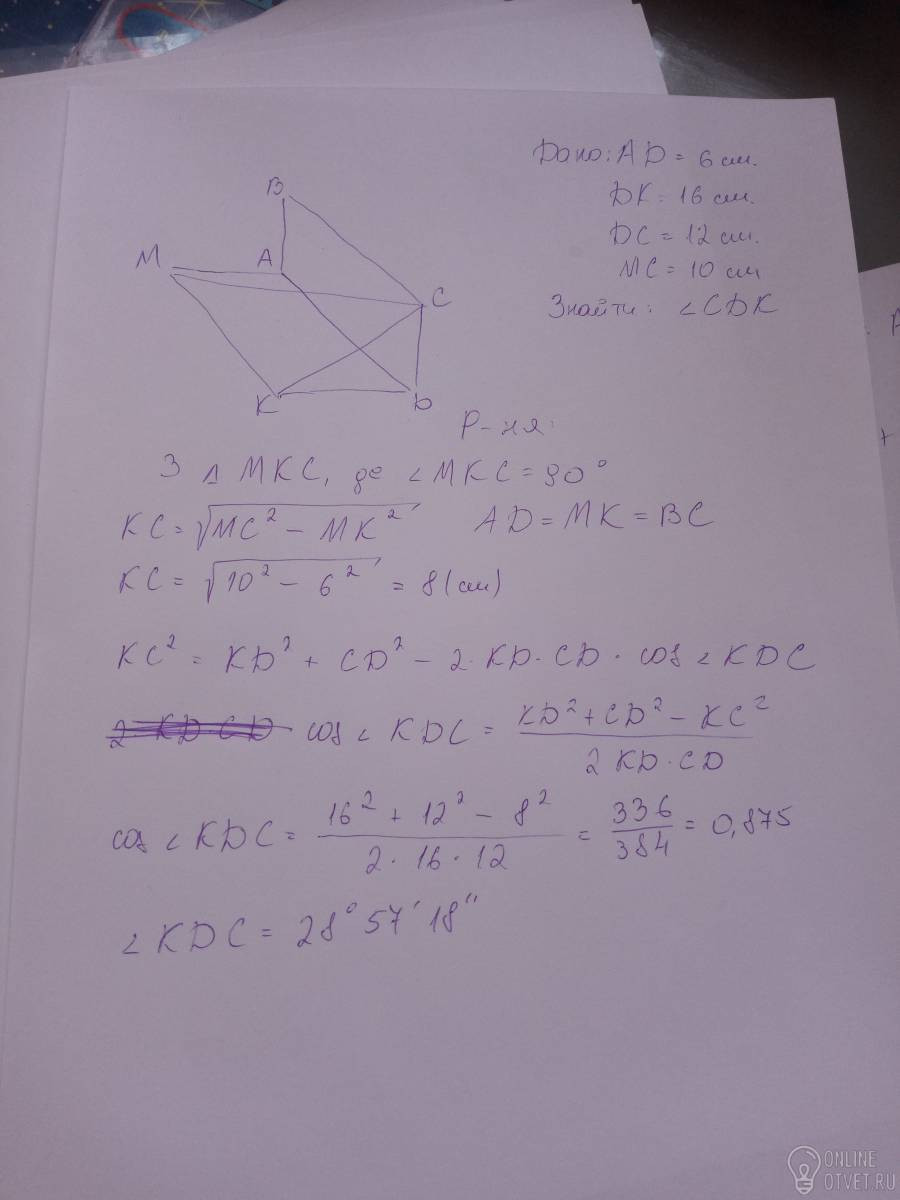 Дано: AD = 6 см.
DK = 16 см.
DC = 12 см.
MC = 10 см
Знайти: ∠CDK
B
M
A
C
K
D
Р-ня:
З △ MKC, де ∠MKC = 90°
KC = √MC² − MK² AD = MK = BC
KC = √10² − 6² = 8 (см)
KC² = KD² + CD² − 2·KD·CD·cos∠KDC
2 KD CD cos∠KDC = KD² + CD² − KC² / 2KD·CD
cos∠KDC = 16² + 12² − 8² / 2·16·12 = 336/384 = 0,875
∠KDC = 28°57′18″
ONLINE
OTVET.RU